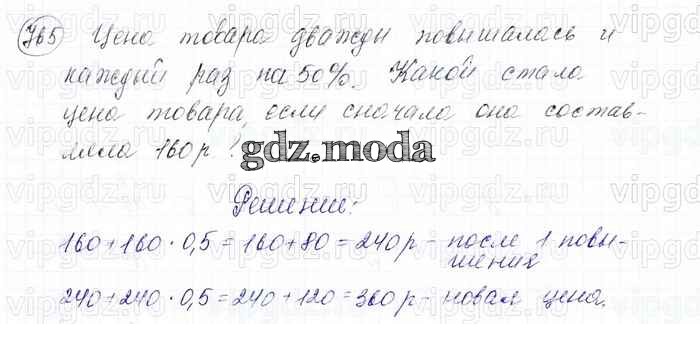 765 Цена товара дважды повышалась и
каждый раз на 50%. Какой стала
цена товара, если сначала она состав-
ляла 160 р?
gdz.moda
Решение:
160+160·0,5=160+80=240р - после 1 повы-
шения
240+240·0,5=240+120=360р - новая цена.